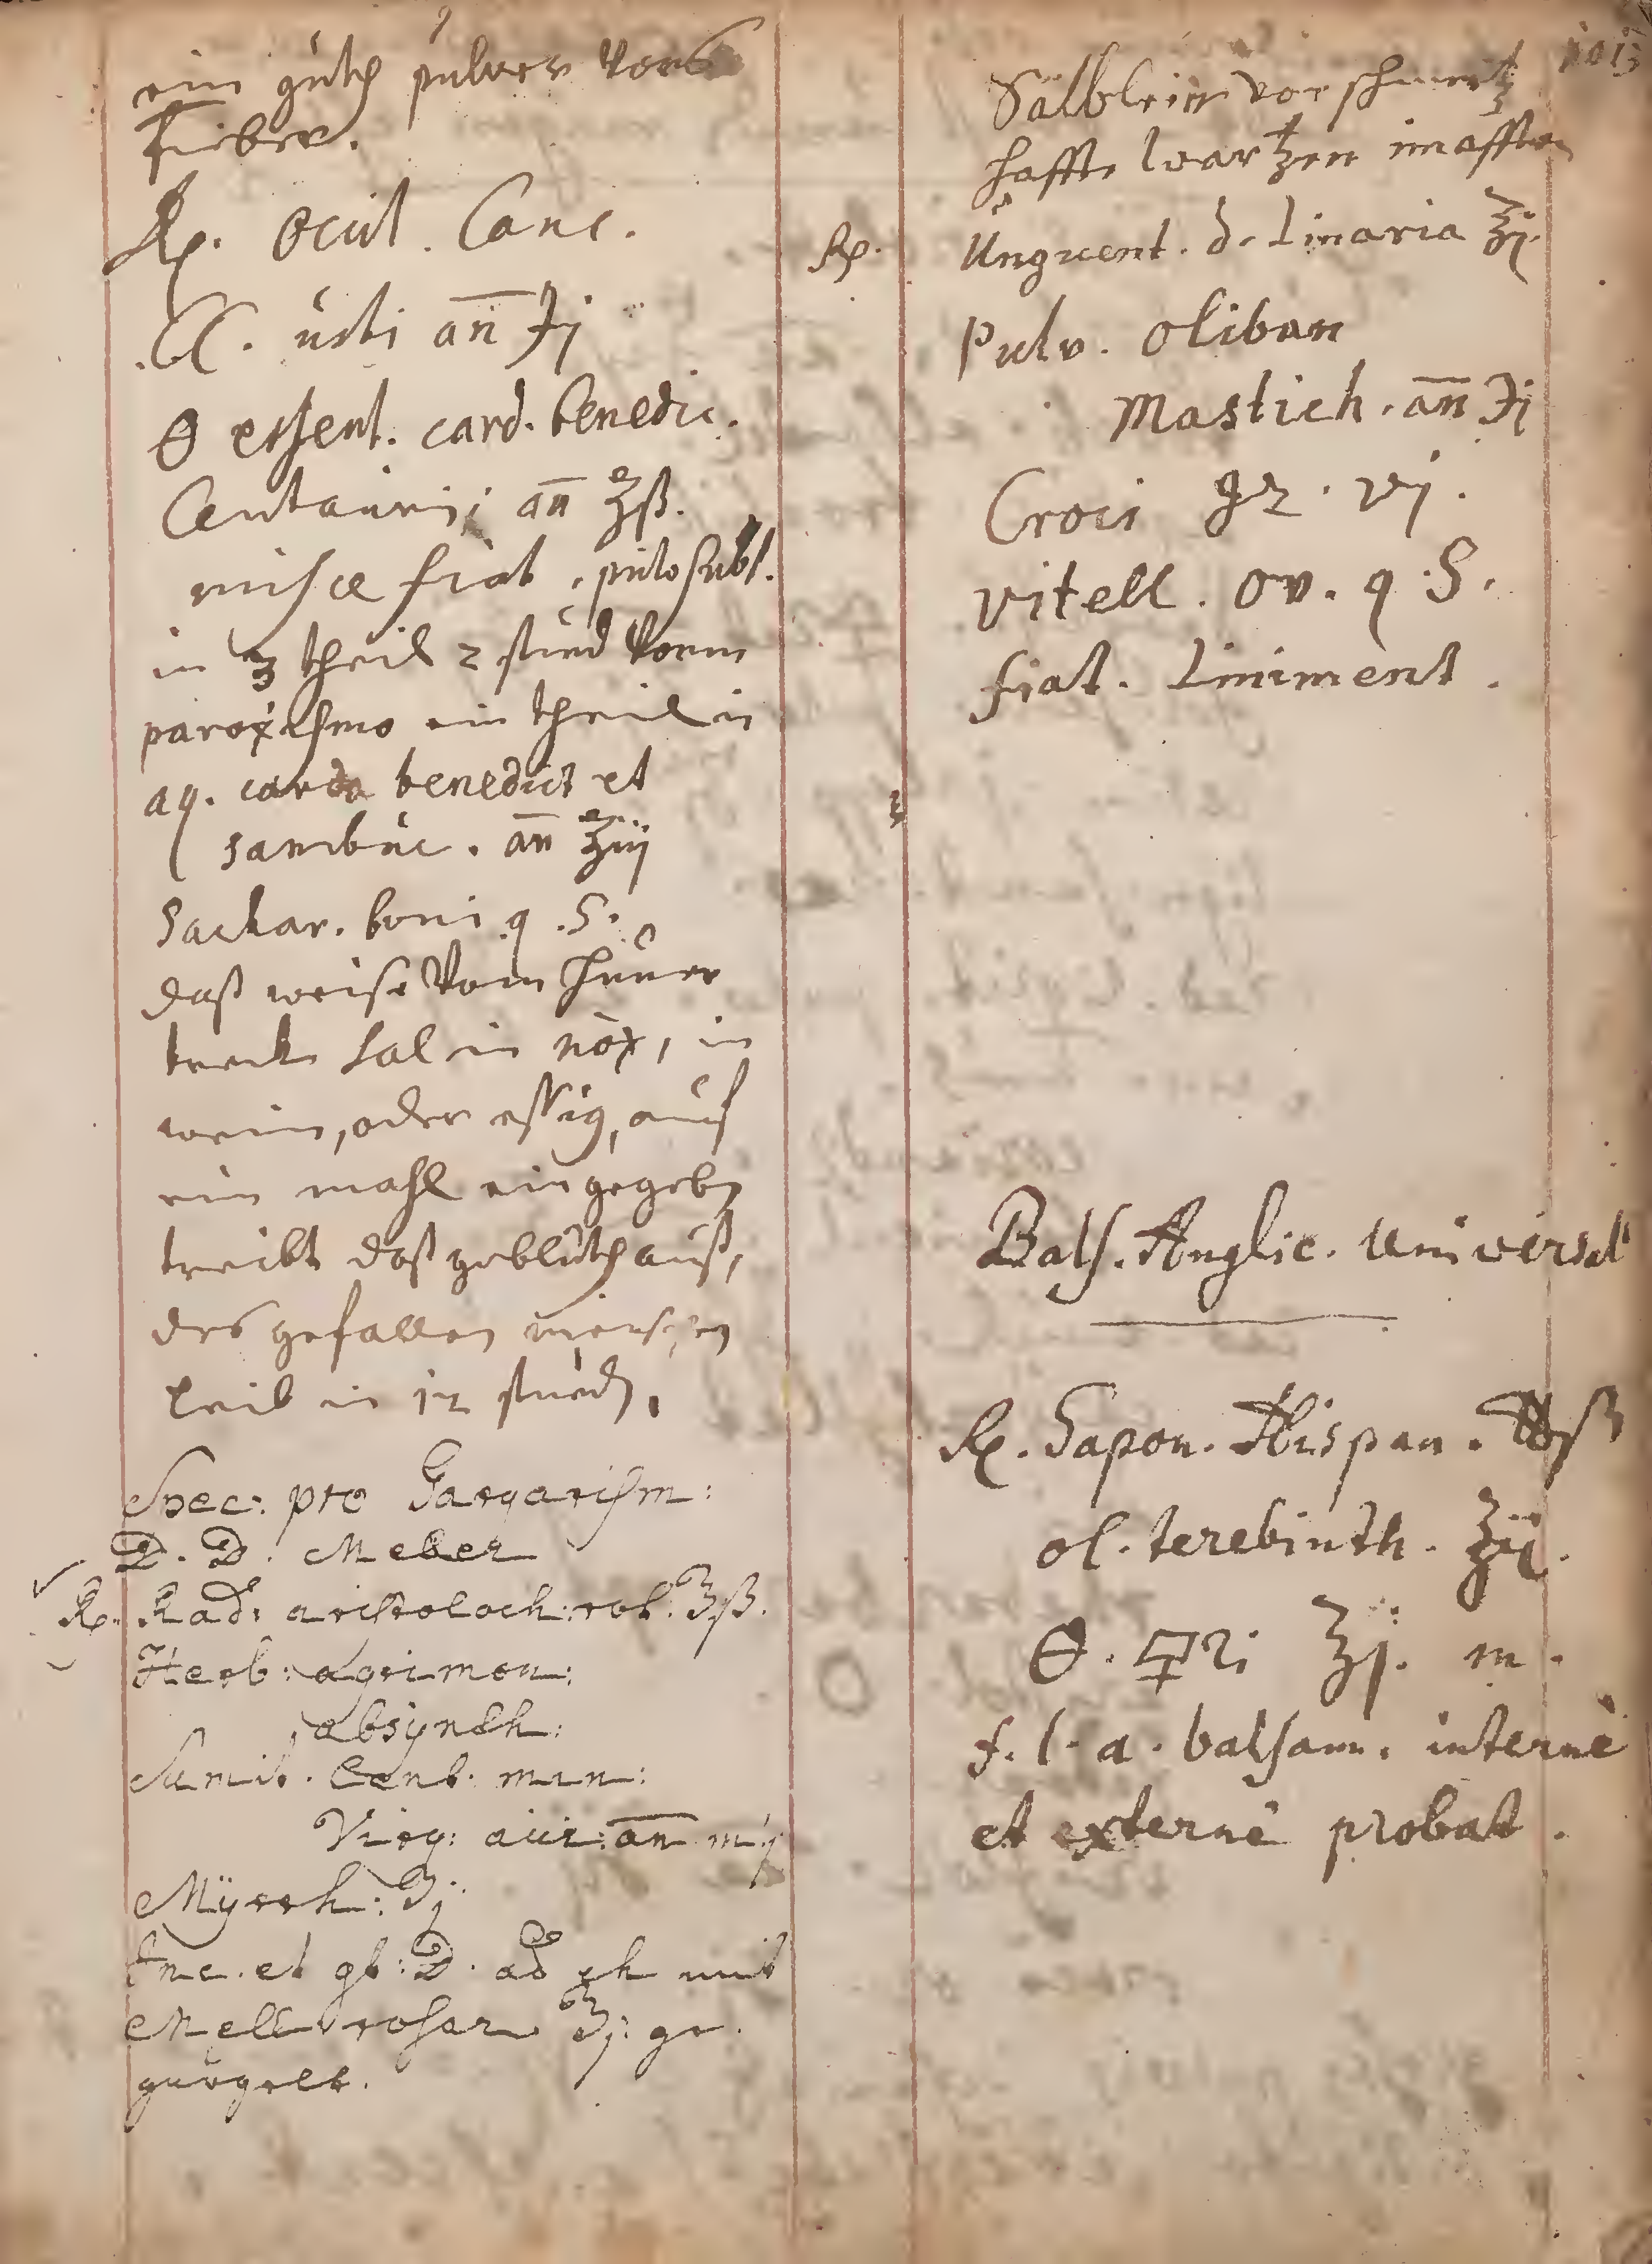 ein guth pulver vors
Fieber.
℞. Ocul. Canc.
CC. usti an̅ ℈j
🜔 essent. card. benedic.
Centaurij an̅ ʒß.
misce fiat pulv subl.
in 3 theil 2 stund vorm
paroxismo ein theil in
aq. card benedict et
sambuc. an̅ ʒiij
Sackar. boni q.S.
daß weise vom hüner
treck Sal in nox, in
wein, oder essig, auf
ein mahl eingegeben
treibt daß geblüth auß,
des gefallen menschen
leib in 12 stund.
Spec: pro Gargarism:
D. D. Meber
℞. Rad: aristoloch: rot: ʒß.
Herb: agrimon:
absynth:
Sumit. Cent. min:
Virg: aur: an̅ mj
Myrrh: ʒj
Inc. et gt: D. ad ch mit
Mell rosar ʒj: ge
gurgelt.
1013
Sälblein vor schmertz
haffte wartzen im afften
℞. Unguent. d. Linaria ʒj.
Pulv. Oliban
Mastich. an̅ ℈j
Croci gr. vj.
Vitell. Ov. q.S.
fiat. Liniment.
Bals. Anglic. Universal
℞. Sapon. Hispan. ℔ß
ol. terebinth. ʒij.
🜔. 🜿ri ʒj. m.
f. l. a. balsam. internè
et externè probat.